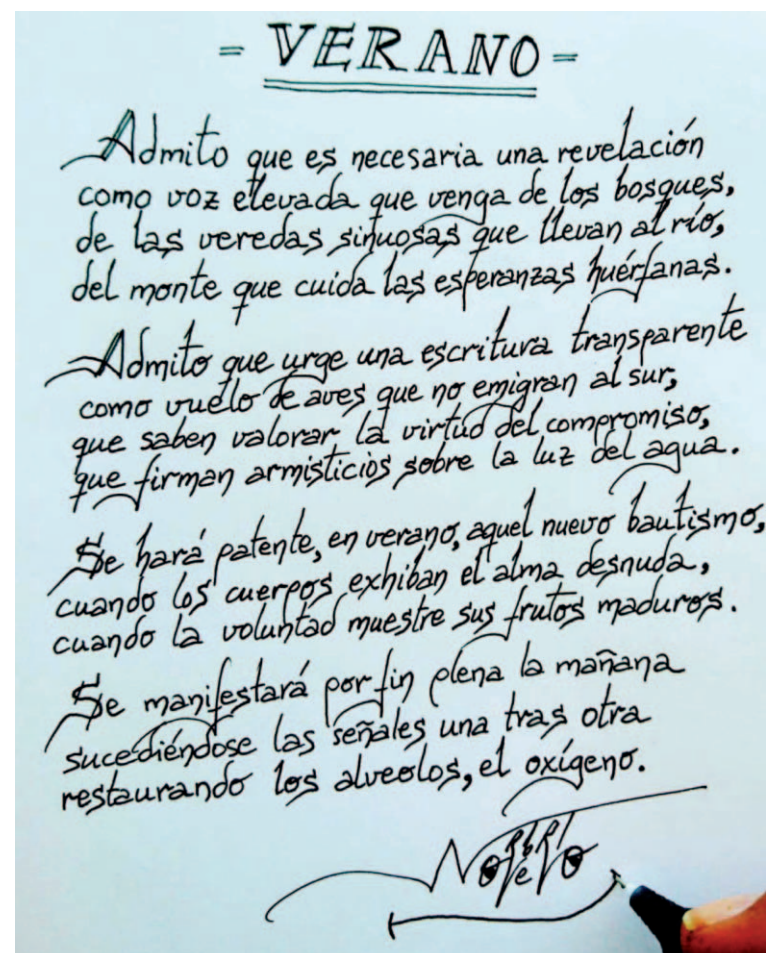 = VERANO =
Admito que es necesaria una revelación
como voz elevada que venga de los bosques,
de las veredas sinuosas que llevan al río,
del monte que cuida las esperanzas huérfanas.
Admito que urge una escritura transparente
como vuelo de aves que no emigran al sur,
que saben valorar la virtud del compromiso,
que firman armisticios sobre la luz del agua.
Se hará patente, en verano, aquel nuevo bautismo,
cuando los cuerpos exhiban el alma desnuda,
cuando la voluntad muestre sus frutos maduros.
Se manifestará por fin plena la mañana
sucediéndose las señales una tras otra
restaurando los alveolos, el oxígeno.